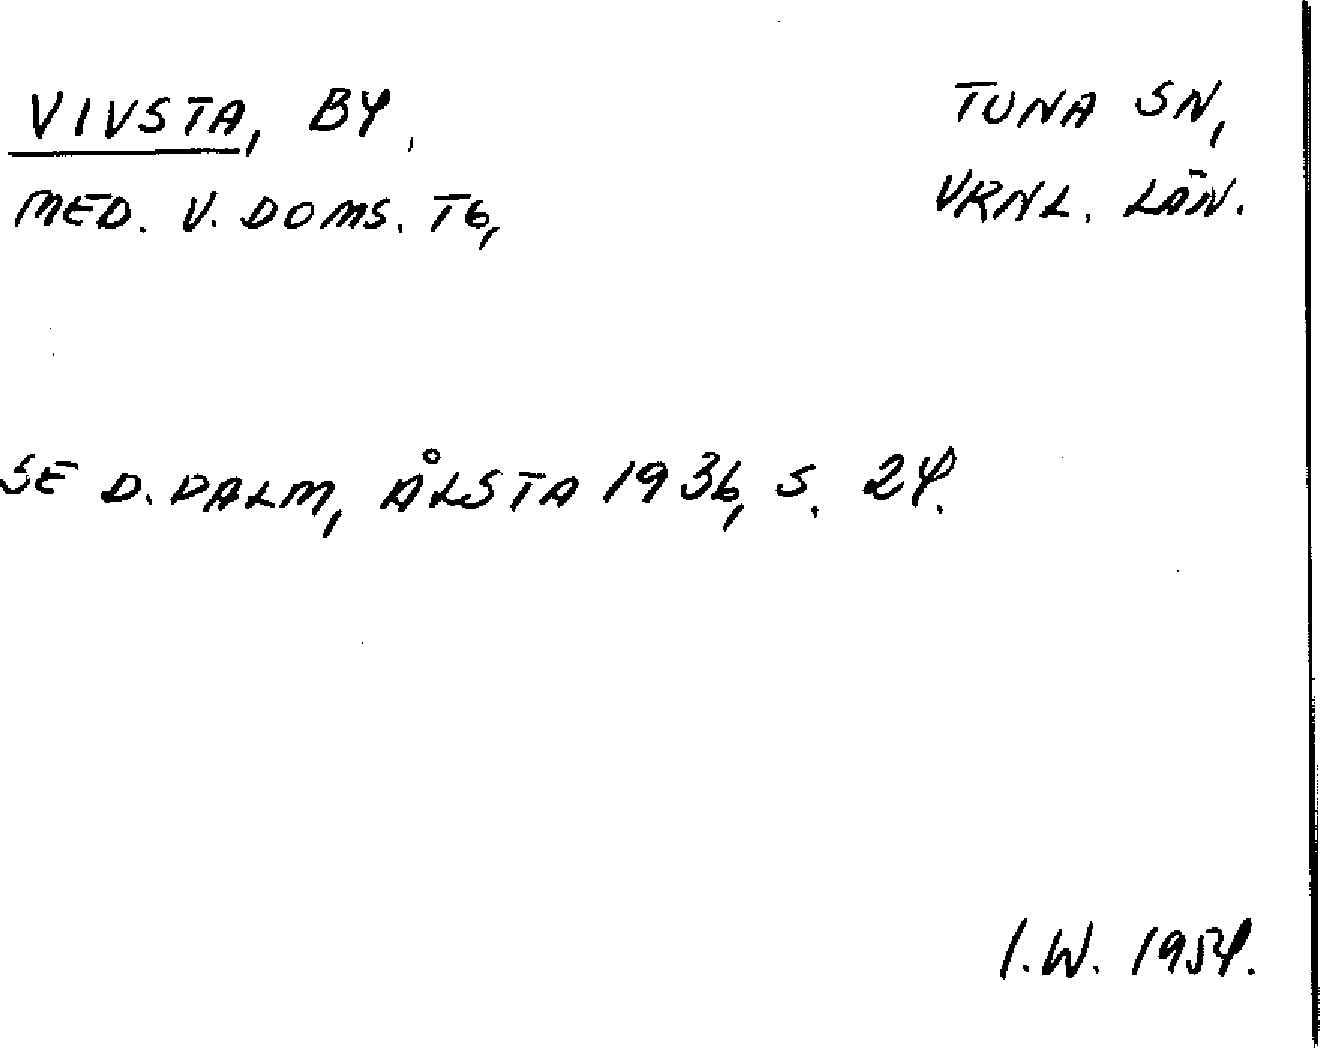 VIVSTA, BY,
MED. V. DOMS. TG,
TUNA SN,
VRNL. LÄN.
SE D. DALM, ÅLSTA 1936, S. 24.
I.W. 1954.